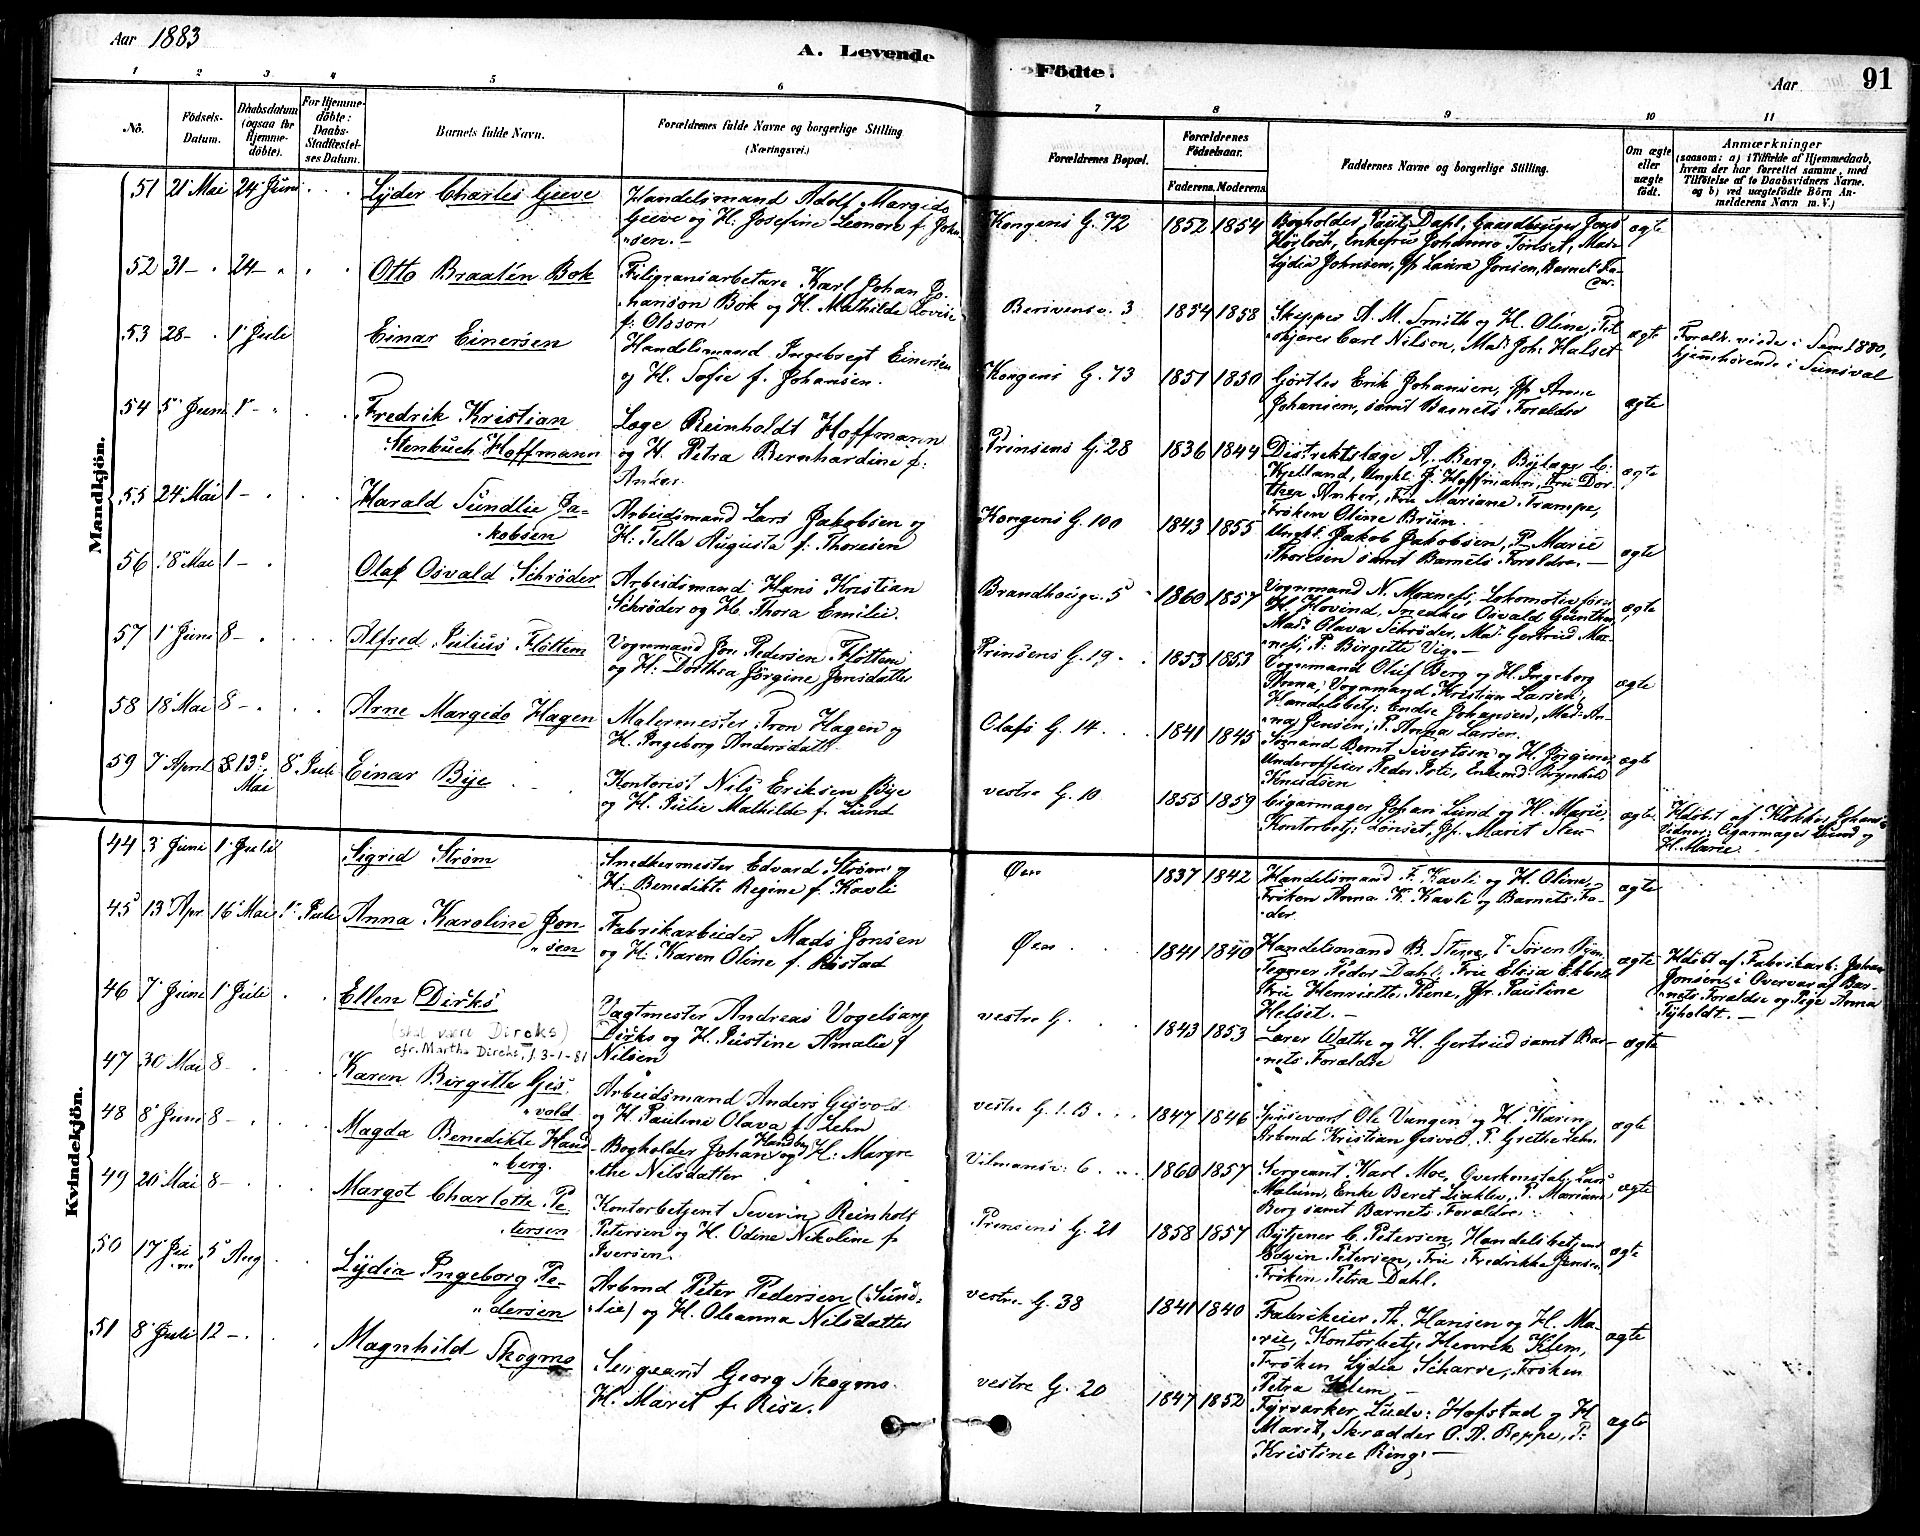 Aar 1883
A. Levende
Födte.
Aar
91
1 2 3 4 5 6 7 8 9 10 11
No.
Födsels-
Datum.
Daabsdatum
(ogsaa for
Hjemme-
döbte).
For Hjemme-
döbte:
Daabs-
Stadfæstel-
ses Datum.
Barnets fulde Navn.
Forældrenes fulde Navne og borgerlige Stilling
(Næringsvei.)
Forældrenes Bopæl.
Forældrenes
Födselsaar.
Faderens. Moderens.
Faddernes Navne og borgerlige Stilling.
Om ægte
eller
uægte
födt.
Anmærkninger
(saasom: a) i Tilfælde af Hjemmedaab,
hvem der har forrettet samme, med
Tilföielse af to Daabsvidners Navne.
og b) ved uægtefödte Börn An-
melderens Navn m. V.)
Mandkjön.
51 21 Mai 24 Juni Lyder Charles Gieve
Handelsmand Adolf Margido
Gieve og H. Josefine Leonore f. John-
sen.
Kongens G. 72 1852 1854
Bogholder Paul Dahl, Gaardbruger Jens
Enkefru Johanna
Lydia Johnsen, Jfr Laura Jonsen, Barnets Fa-
der.
ægte
52 31 - 24 - Otto Braatén Bok
Filigransarbeider Karl Johan Jo-
hanson Bok og H. Mathilde Lovise
f. Olsson
Bersvens v. 3 1854 1858
Skipper A. M. Smith og H. Oline,
Carl Nilsen, Mad. Joh. Halset
ægte
Foræld. viede i 1880,
hjemhørende i Sunsval
53 28 - 1 Juli Einar Einersen
Handelsmand Ingebregt Einersen
og H. Sofie f. Johansen.
Kongens G. 73 1851 1850
Gørtler Erik Johansen, Jfr Anne
Johansen, samt Barnets Foraldre
ægte
54 5 Juni 1 - Fredrik Kristian
Stenbuch Hoffmann
Læge Reinholdt Hoffmann
og H. Petra Bernhardine f.
Anker.
Prinsens G. 28 1836 1844
Distriktslæge A. Berg, Bylæge C.
Kjelland, Ungk. J. Hoffmann, Fru Dor-
thea Anker, Fru Mariane Trampe,
Frøken Oline Bruun.
ægte
55 24 Mai 1 - Harald Sundlie Ja-
kobsen
Arbeidsmand Lars Jakobsen og
H. Tella Augusta f. Thoresen
Kongens G. 100 1843 1855
Ungk. Jakob Jakobsen, P. Marie
Thoresen samt Barnets Foraldre. -
ægte
56 18 Mai 1 - Olaf Osvald Schrøder
Arbeidsmand Hans Kristian
Schrøder og H. Thora Emilie.
Brandhaugv. 5 1860 1857
Vognmand N. Moxnes, Lokomotivfører
H. Hovind, Snedker Osvald Günther,
Mad. Olava Schrøder, Mad. Gertrud Mox-
nes, P. Birgitte Vig. -
ægte
57 1 Juni 8 - Alfred Julius Fløttem
Vognmand Jon Pedersen Fløttem
og H. Dorthea Jørgine Jonsdatter
Prinsens G. 19 1853 1853
Vognmand Oluf Berg og H. Ingeborg
Anna, Vognmand Kristian Larsen,
Handelsbetj. Endre Johansen, Mad. An-
na Jensen, P. Anna Larsen.
ægte
58 18 Mai 8 - Arne Margido Hagen
Malermester Tron Hagen og
H. Ingeborg Andersdatt.
Olafs G. 14 1841 1845
Sømand Bernt Sivertsen og H. Jørgine,
Underofficer Peder Enkemd Brynhild
Knudsen
ægte
59 7 April 13 Mai 8 Juli Einar Bye
Kontorist Nils Eriksen Bye
og H. Julie Mathilde f. Lund
vestre G. 10 1855 1859
Cigarmager Johan Lund og H. Marie,
Kontorbetj. Lønset, Jfr. Marit Sten-
ægte
Hdøbt af Klokker Johans
Vidner: Cigarmager Lund og
H. Marie
Kvindekjön.
44 3 Juni 1 Juli Sigrid Strøm
Snedkermester Edvard Strøm og
H. Benedikte Regine f. Kavli
Øen 1837 1842
Handelsmand F. Kavli og H. Oline,
Frøken Anna K. Kavli og Barnets Fa-
der
ægte
45 13 Apr 16 Mai 1 Juli Anna Karoline Jon-
sen
Fabrikarbeider Mads Jonsen
og H. Karen Oline f. Ristad
Øen 1841 1840
Handelsmand B. Stene,
Peder Dahl, Fru Elisa
Fru Henriette Jfr. Pauline
Helset. -
ægte
Hdøbt af Fabrikarb. Johan
Jonsen i Overvær af Bar-
nets Foraldre og Pige Anna
Tyholdt. -
46 7 Juni 1 Juli Ellen Dirks
(skal være Dircks)
cfr. Martha Dircks, f. 3-1-81
Vagtmester Andreas Vogelsang
Dirks og H. Justine Amalie f
Nilsen
vestre G. 1843 1853
Lærer Wæthe og H. Gertrud samt Bar-
nets Foraldre
ægte
47 30 Mai 8 - Karen Birgitte Gis
vold
Arbeidsmand Anders Gisvold
og H. Pauline Olava f. Lehn
vestre G. 1 B 1847 1846
Spisevært Ole Vangen og H. Karen,
Arbmd Kristian Gisvold, P. Grethe Lehn.
ægte
48 8 Juni 8 - Magda Benedikte Hand
berg.
Bogholder Johan Handberg og H. Margre
the Nilsdatter
Vilmans v. 6 1860 1857
Sergeant Karl Moe, Overkonstabel Lars
Malum, Enke Beret P. Mariane
Berg samt Barnets Foraldre.
ægte
49 20 Mai 8 - Margot Charlotte Pe-
tersen
Kontorbetjent Severin Reinholt
Petersen og H. Odine Nikoline f
Iversen
Prinsens G. 21 1858 1857
Bytjener C. Petersen, Handelsbetjent
Edvin Petersen, Fru Fredrikke Jensen,
Frøken Petra Dahl.
ægte
50 17 Juni 5 Aug Lydia Ingeborg Pe-
dersen
Arbmd Peter Pedersen (Sund-
lie) og H. Oleanna Nilsdatter
vestre G. 38 1841 1840
Fabrikeier Th. Hansen og H. Ma-
rie, Kontorbetj. Henrik Klem,
Frøken Lydia Scharre, Frøken
Petra Klem. -
ægte
51 8 Juli 12 - Magnhild Skogmo
Sergeant Georg Skogmo
H. Marit f. Rise.
vestre G. 20 1847 1852
Fyrværker Ludv. Hofstad og H
Marit, Skrædder O. A. Beppe, P.
Kristine Ring. -
ægte